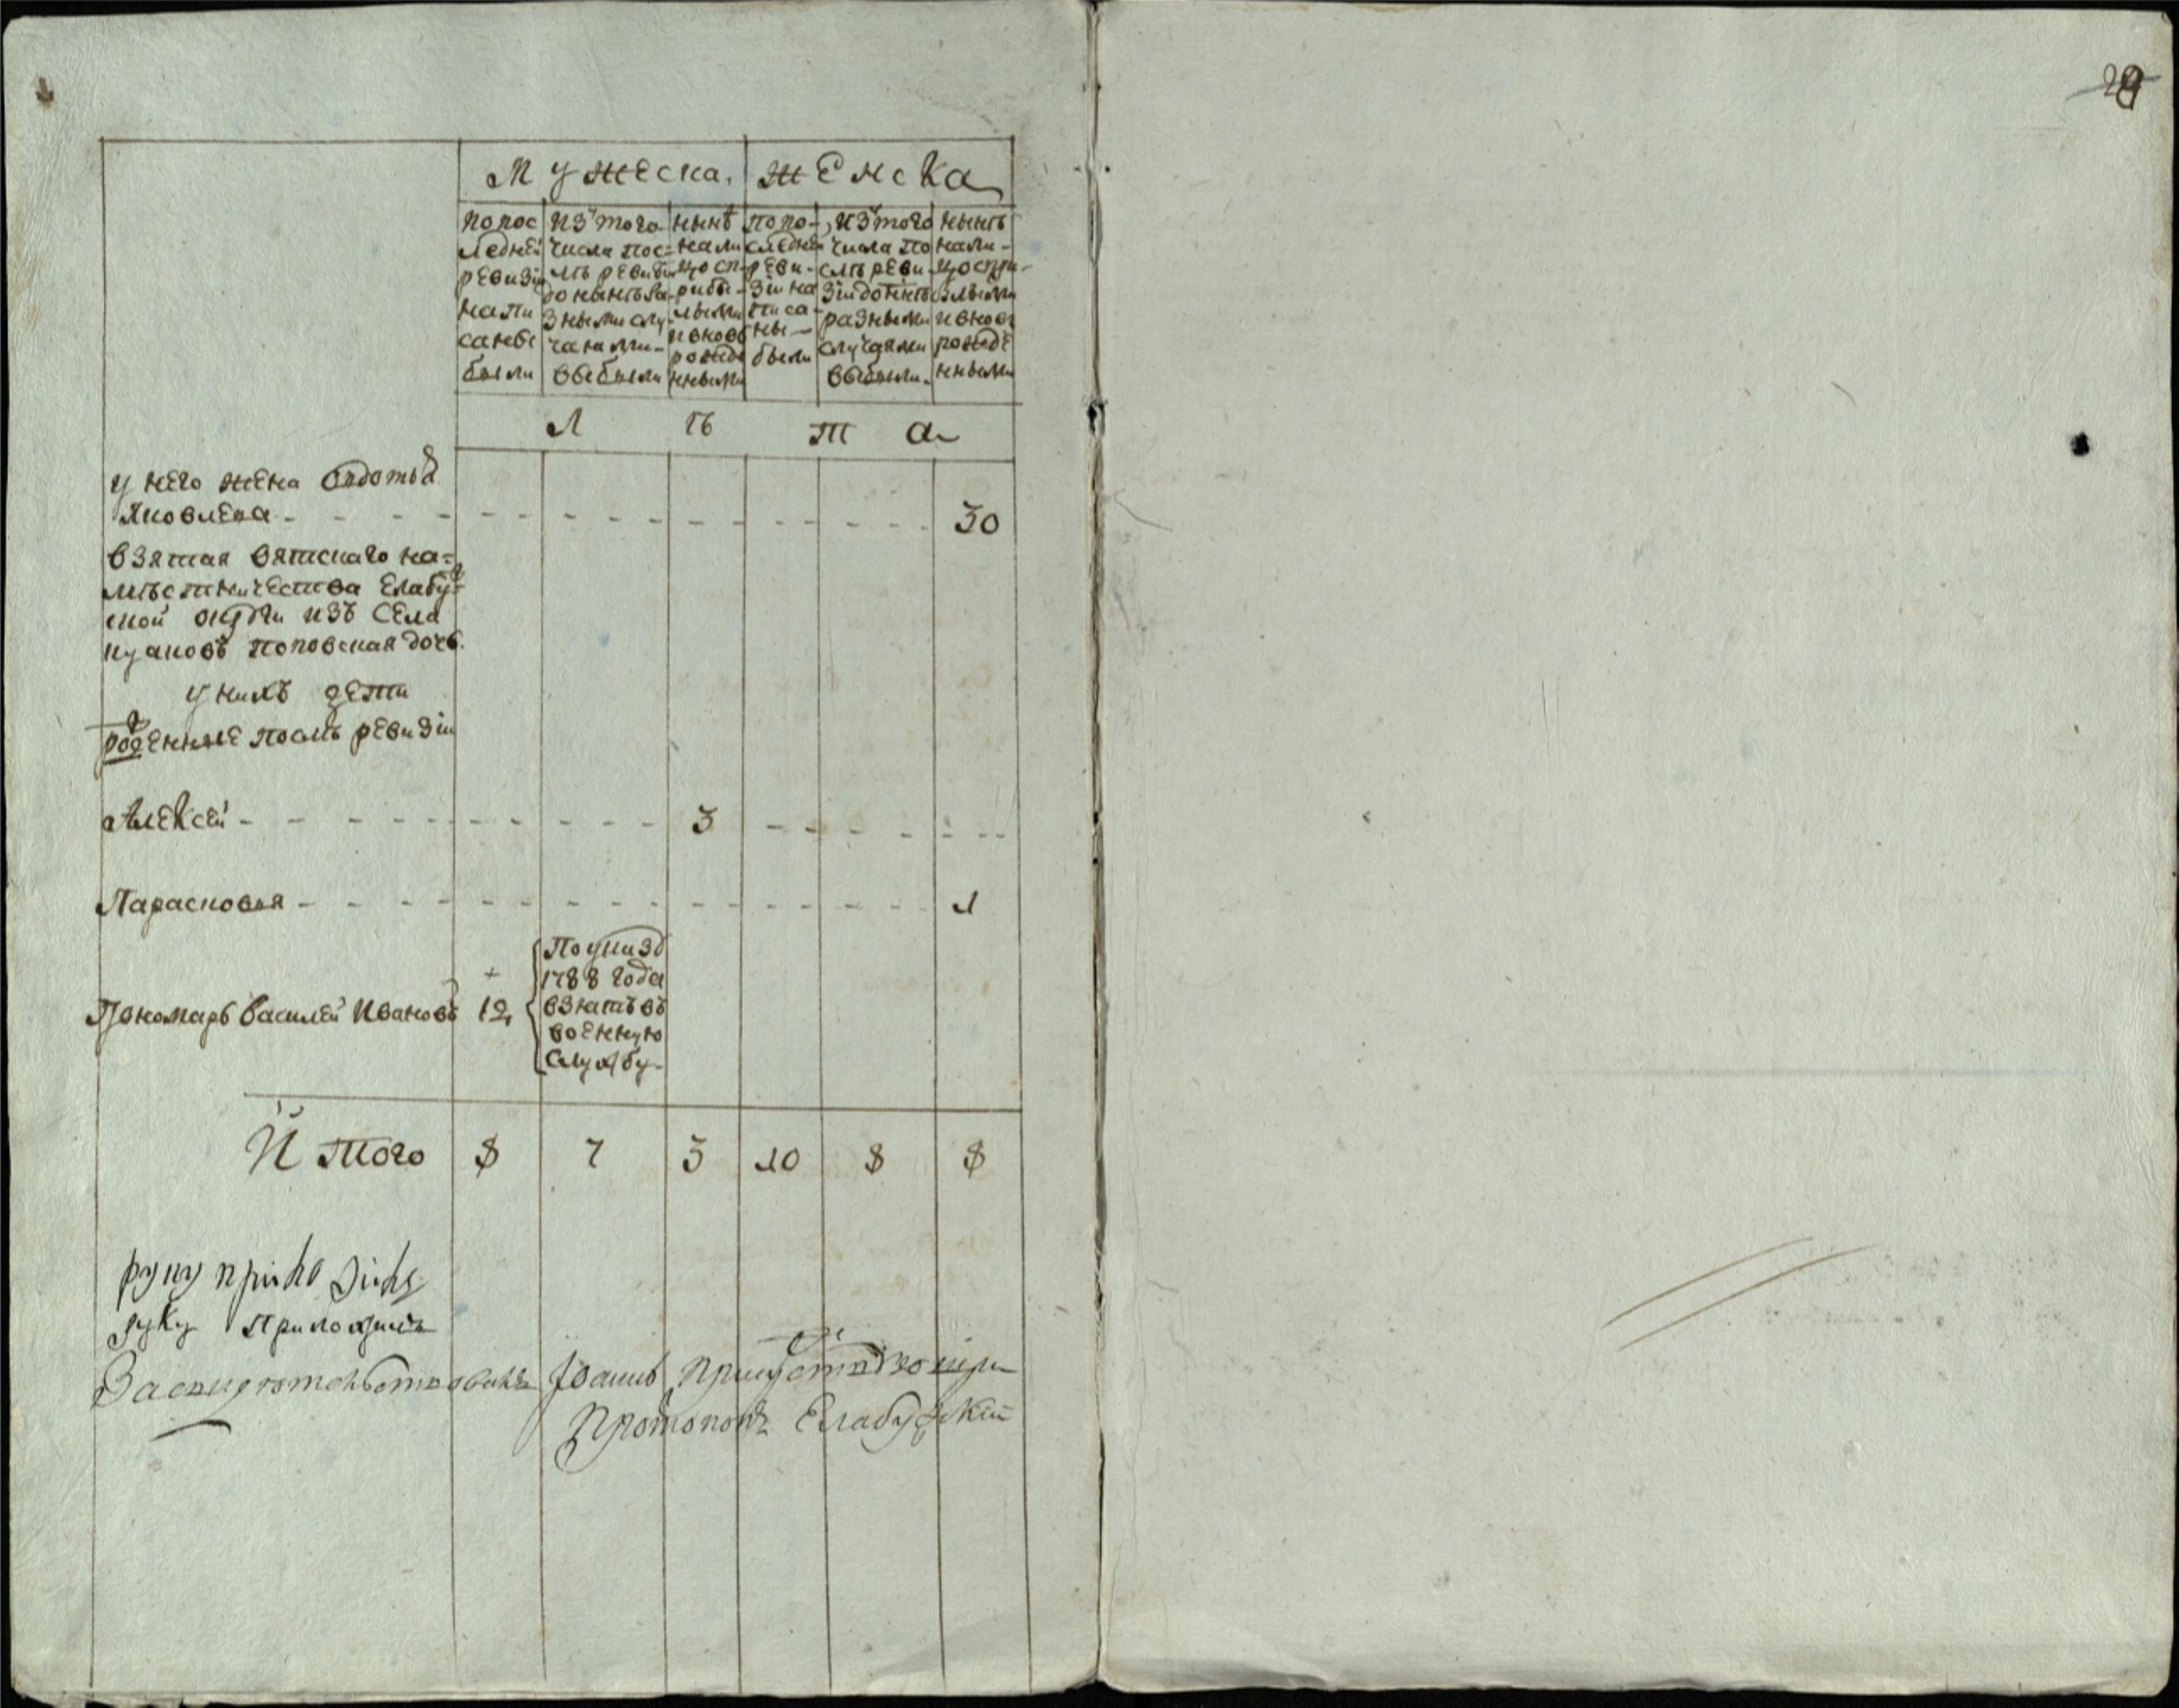 28
Мужеска. женска
попос
ледней
ревизіи
напи
санбе
были
изъ того
числа пос=
лѣ ревизіи
до нынѣ ра
зными слу
чаями-
выбыли
нынѣ
нали
цо сп
рибы-
лыми
и вновь
рожде
нными
попо-
следней
реви-
зіи на
писа-
ны-
были
изъ того
числа по
слѣ реви
зіи до нынѣ
разными
случаями
выбыли.
нынѣ
нали-
цо спри-
былыми
и вновь
рожде
нными
Л ѣ т а
у него жена Овдотья
Яковлева - - - - 30
взятая вятскаго на=
мѣстничества Елабу=
ской округи изъ Села
куаковъ поповская дочь.
у нихъ дети
рожденные послѣ ревизіи
Алексей - - - - 3 - - - -
Парасковья - - - - 1
Пономарь Василей Ивановъ + 12
По указу
1788 года
взнатъ въ
военную
службу-
И того 8 7 3 10 8 8
руку приложилъ
руку приложилъ
Засвидетельствовалъ Іоаннъ присутствующи
Протопопъ Елабужскій